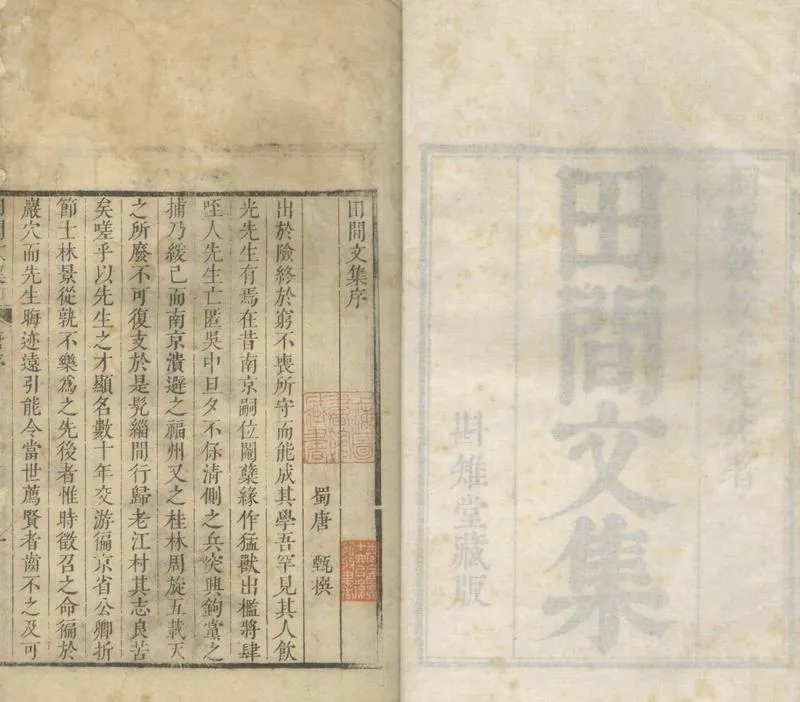 田閒文集
斟雉堂藏版
田閒文集序
蜀唐 甄撰
出於險終於窮不喪所守而能成其學吾罕見其人飲
光先生有焉在昔南京嗣位閹孽緣作猛獸出檻將肆
咥人先生亡匿吳中旦夕不保清側之兵突興鉤黨之
捕乃緩已而南京潰避之福州又之桂林周旋五載天
之所廢不可復支於是髡緇閒行歸老江村其志良苦
矣嗟乎以先生之才顯名數十年交游徧京省公卿折
節士林景從孰不樂爲之先後者惟時徵召之命徧於
巖穴而先生晦迹遠引能令當世薦賢者齒不之及可